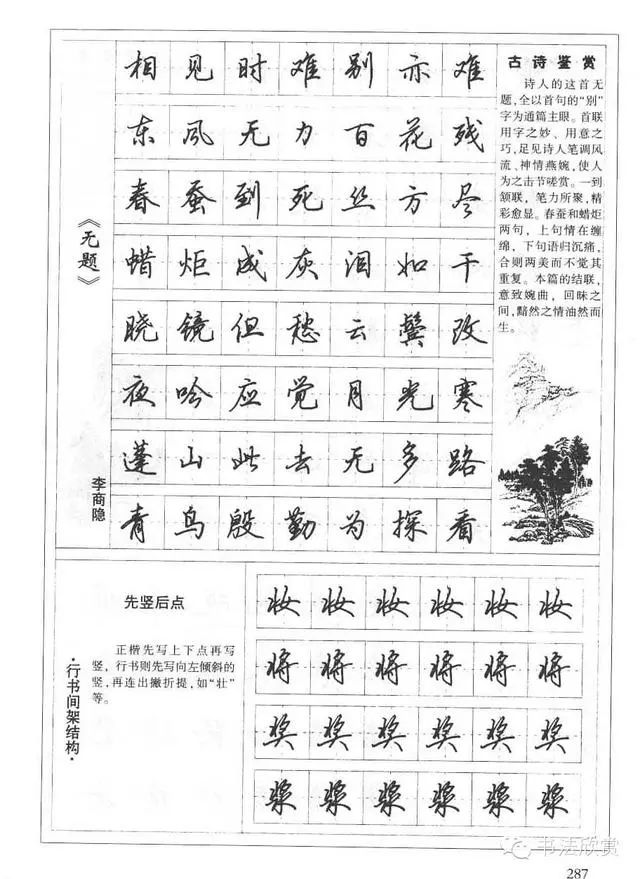 《无题》
李商隐
相见时难别亦难
东风无力百花残
春蚕到死丝方尽
蜡炬成灰泪如干
晓镜但愁云鬓改
夜吟应觉月光寒
蓬山此去无多路
青鸟殷勤为探看
古诗鉴赏
诗人的这首无
题,全以首句的“别”
字为通篇主眼。首联
用字之妙、用意之
巧,足见诗人笔调风
流、神情燕婉,使人
为之击节嗟赏。一到
颔联,笔力所聚,精
彩愈显。春蚕和蜡炬
两句,上句情在缠
绵,下句语归沉痛,
合则两美而不觉其
重复。本篇的结联,
意致婉曲,回味之
间,黯然之情油然而
生。
·行书间架结构·
先竖后点
正楷先写上下点再写
竖,行书则先写向左倾斜的
竖,再连出撇折提,如“壮”
等。
妆妆妆妆妆妆
将将将将将将
奖奖奖奖奖奖
浆浆浆浆浆浆
书法欣赏
287